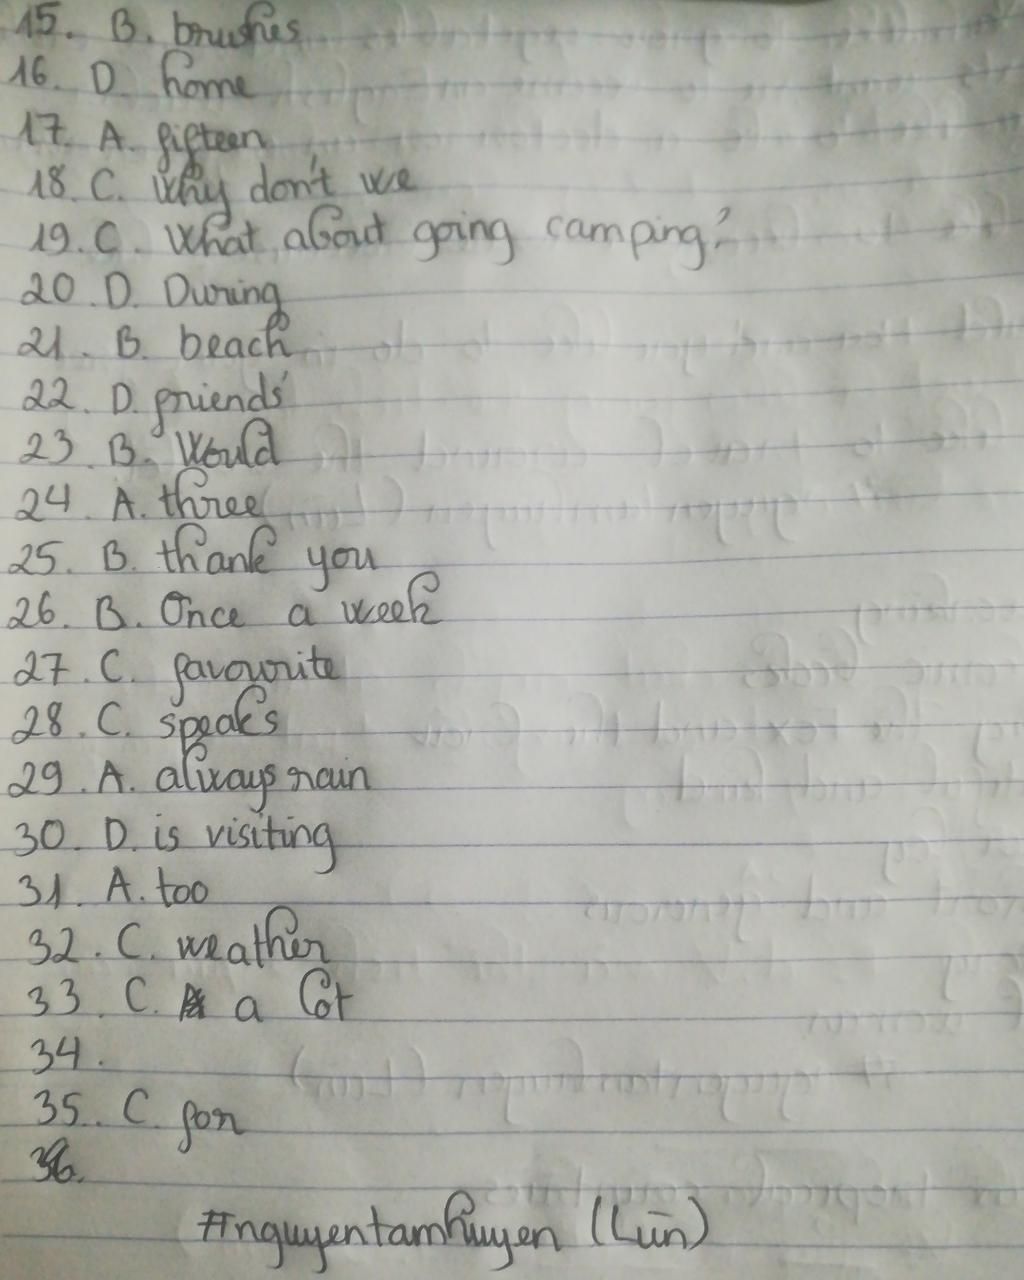 15. B. brushes
16. D. home
17. A. fifteen
18. C. Why don't we
19. C. What about going camping?
20. D. During
21. B. beach
22. D. friends'
23. B. Would
24. A. three
25. B. thank you
26. B. Once a week
27. C. favourite
28. C. speaks
29. A. always rain
30. D. is visiting
31. A. too
32. C. weather
33. C. a lot
34.
35. C. for
36.
#nguyentamhuyen (Lùn)